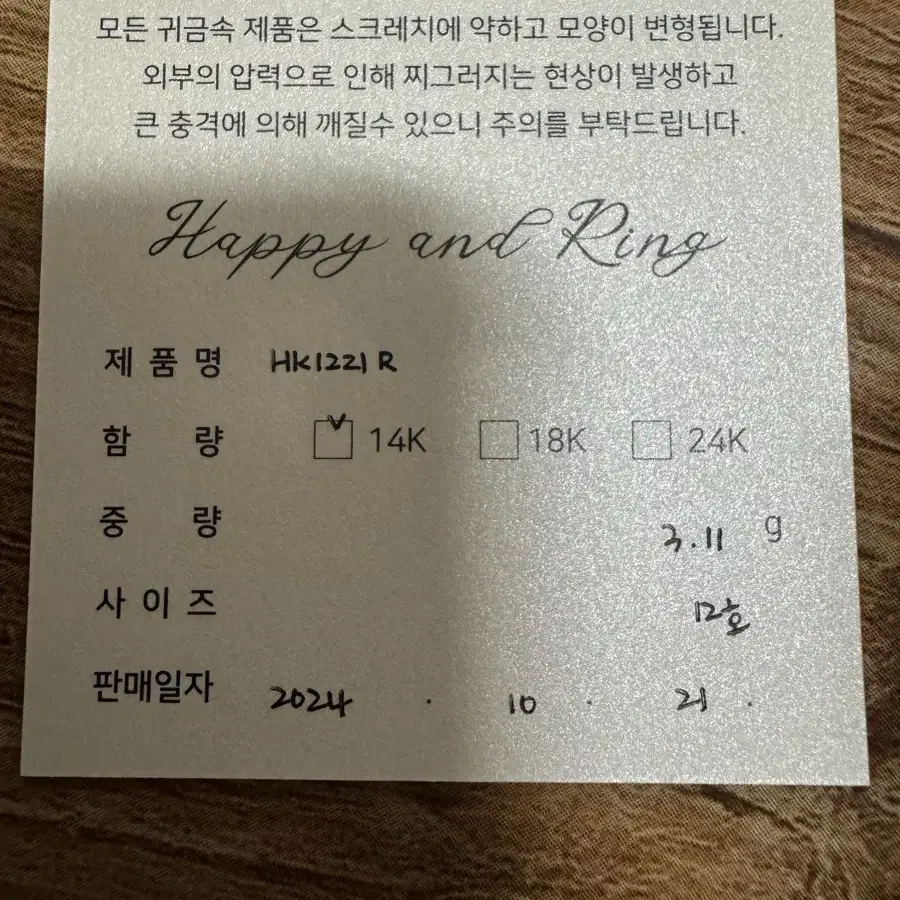 모든 귀금속 제품은 스크레치에 약하고 모양이 변형됩니다.
외부의 압력으로 인해 찌그러지는 현상이 발생하고
큰 충격에 의해 깨질수 있으니 주의를 부탁드립니다.
Happy and Ring
제 품 명 HK1221 R
함 량 14K 18K 24K
중 량 3.11 g
사 이 즈 12호
판매일자 2024 . 10 . 21 .